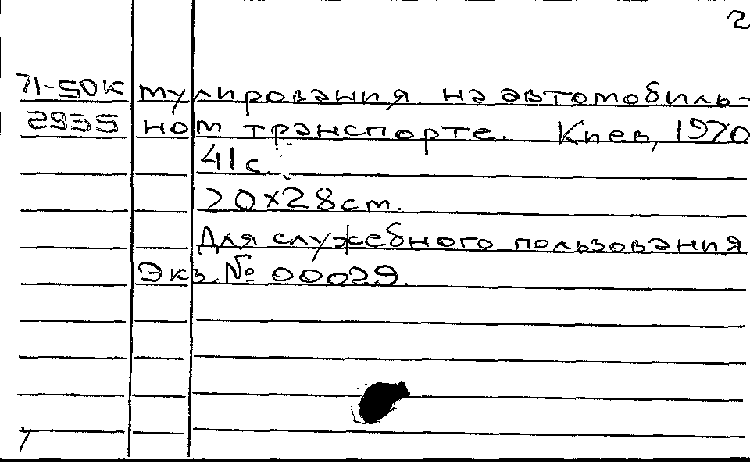 2
71-50К тулирования на автомобиль-
2935 ном транспорте. Киев, 1970
41 с.
20х28 см.
Для служебного пользования
Экз. № 00029.